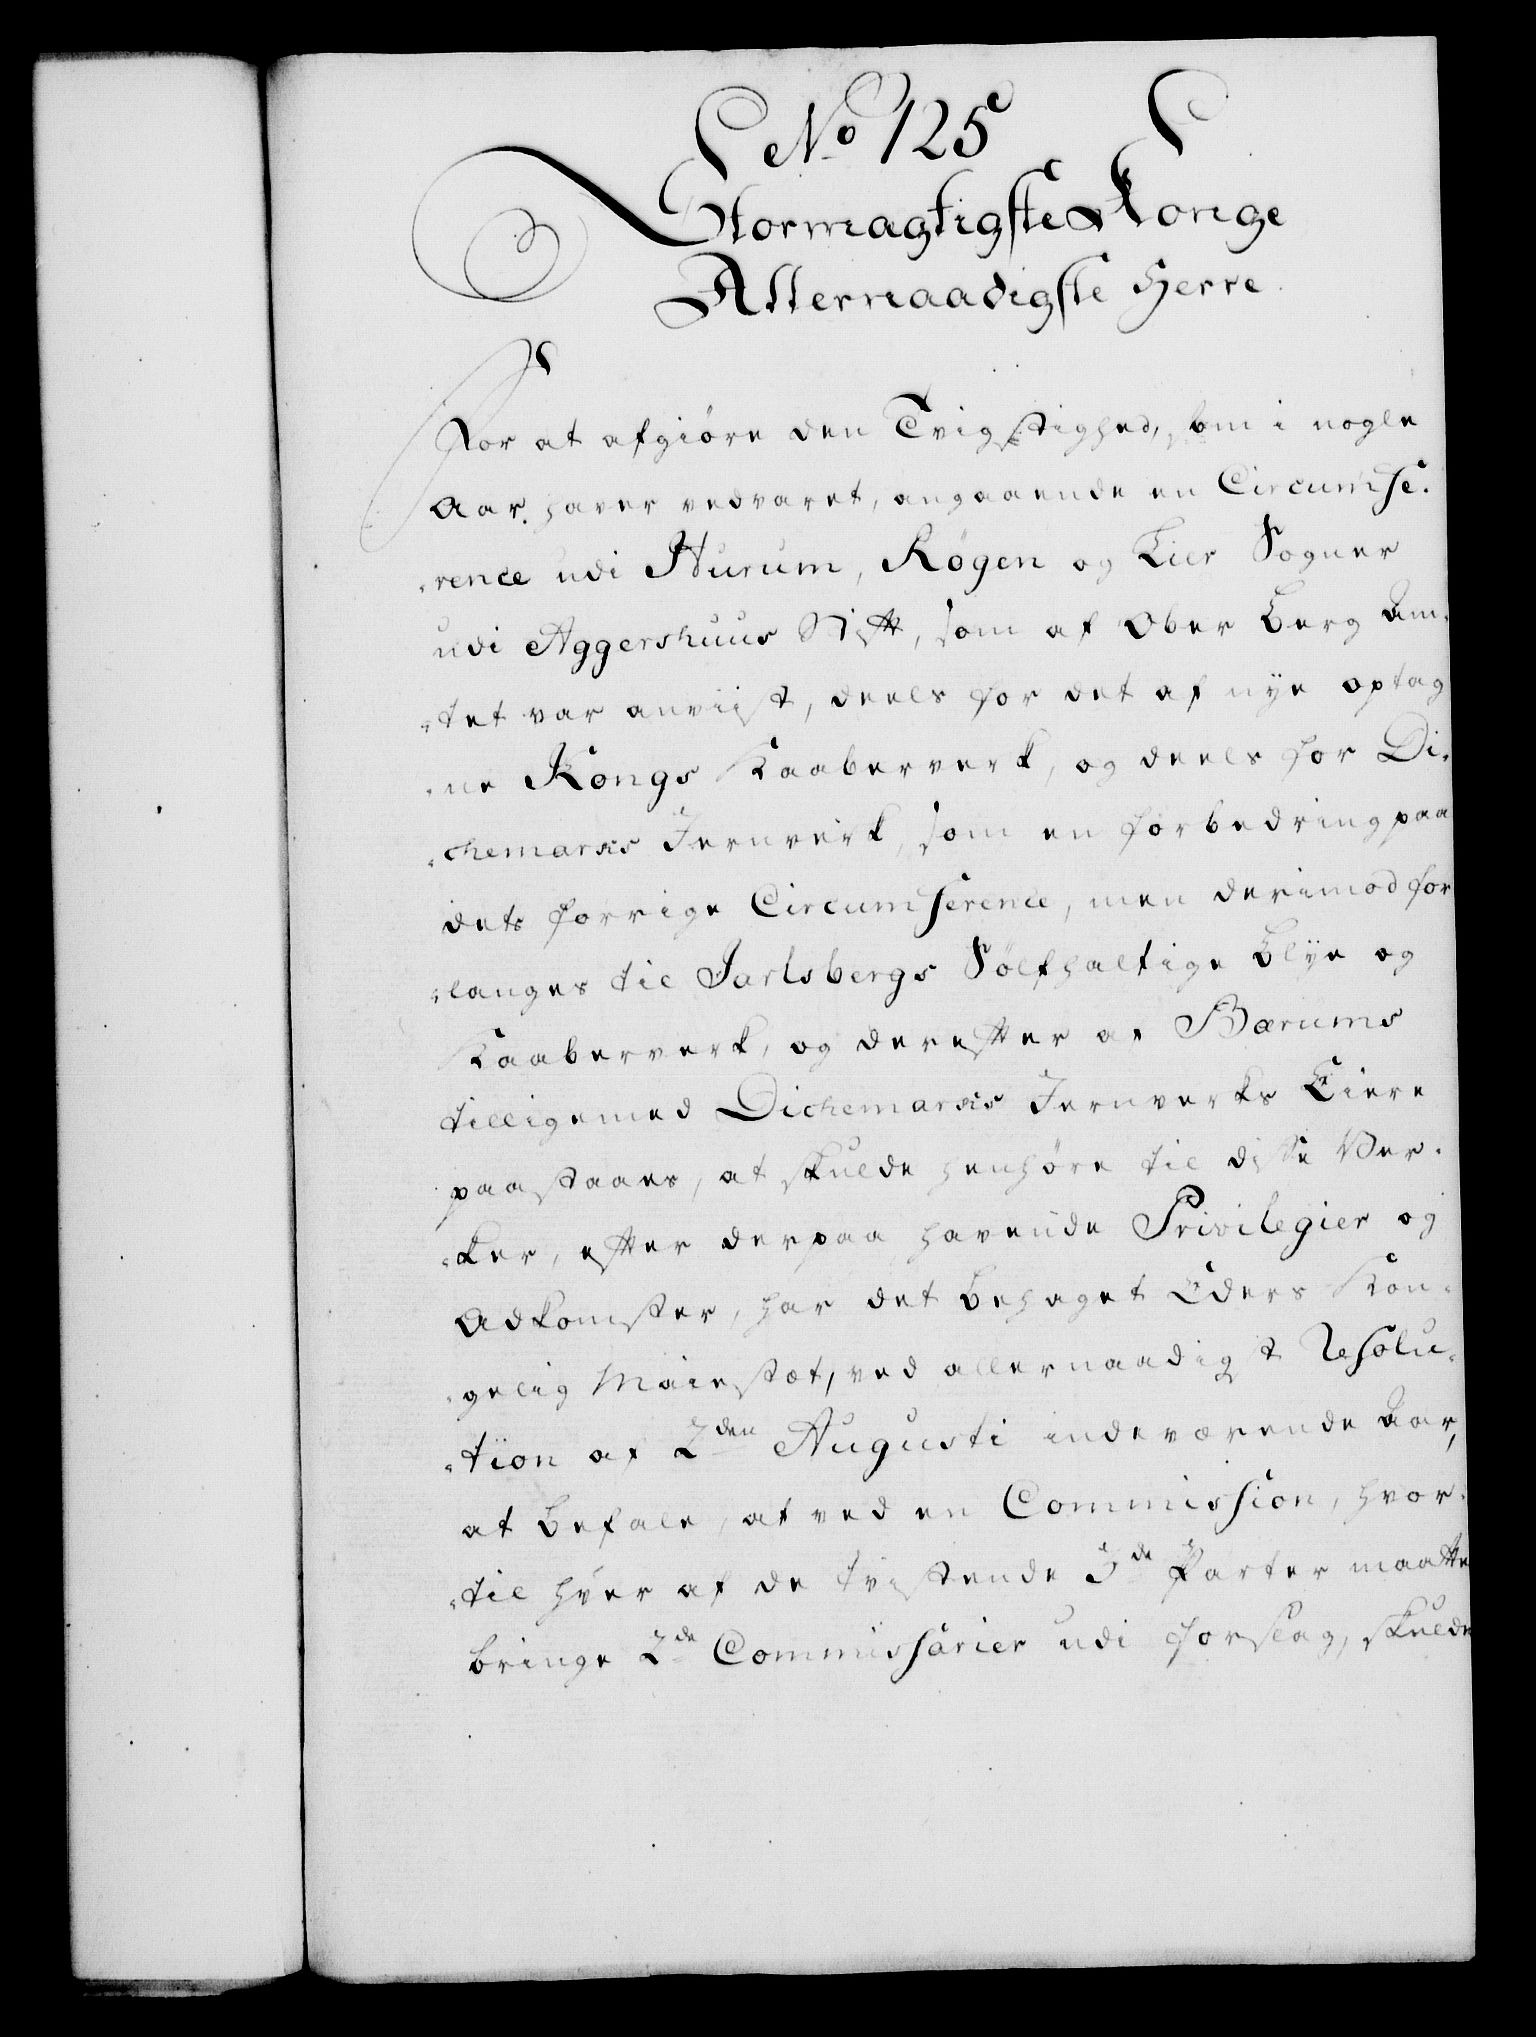 No 125
Stormægtigste Konge
Allernaadigste Herre.
For at afgiöre den Tvigstighed, som i nogle
Aar haver vedvaret, angaaende en Circumfe-
-rence udi Hurum, Røgen og Lier Sogner
udi Aggershuus Stift, som af Ober Berg Am-
-tet var anviist, deels for det af nye optag
-ne Kongs Kaaberverk, og deels for Di-
-chemarks Jernverk, som en forbedring paa
dets forrige Circumference, men derimod for
-langes til Jarlsbergs Sölfhaltige Blye og
Kaaberverk, og derefter af Bærums
tilligemed Dichemarks Jernverks Eiere
paastaaes, at skulde henhöre til disse Ver-
-ker, efter derpaa havende Privilegier og
Adkomster, har det behaget Eders Kon-
-gelig Maiestæt, ved allernaadigst Resolu-
-tion af 2den Augusti indeværende Aar,
at befale, at ved en Commission, hvor-
-til hver af de tvistende 3de Parter maatte
bringe 2de Commissarier udi forslag, skulde